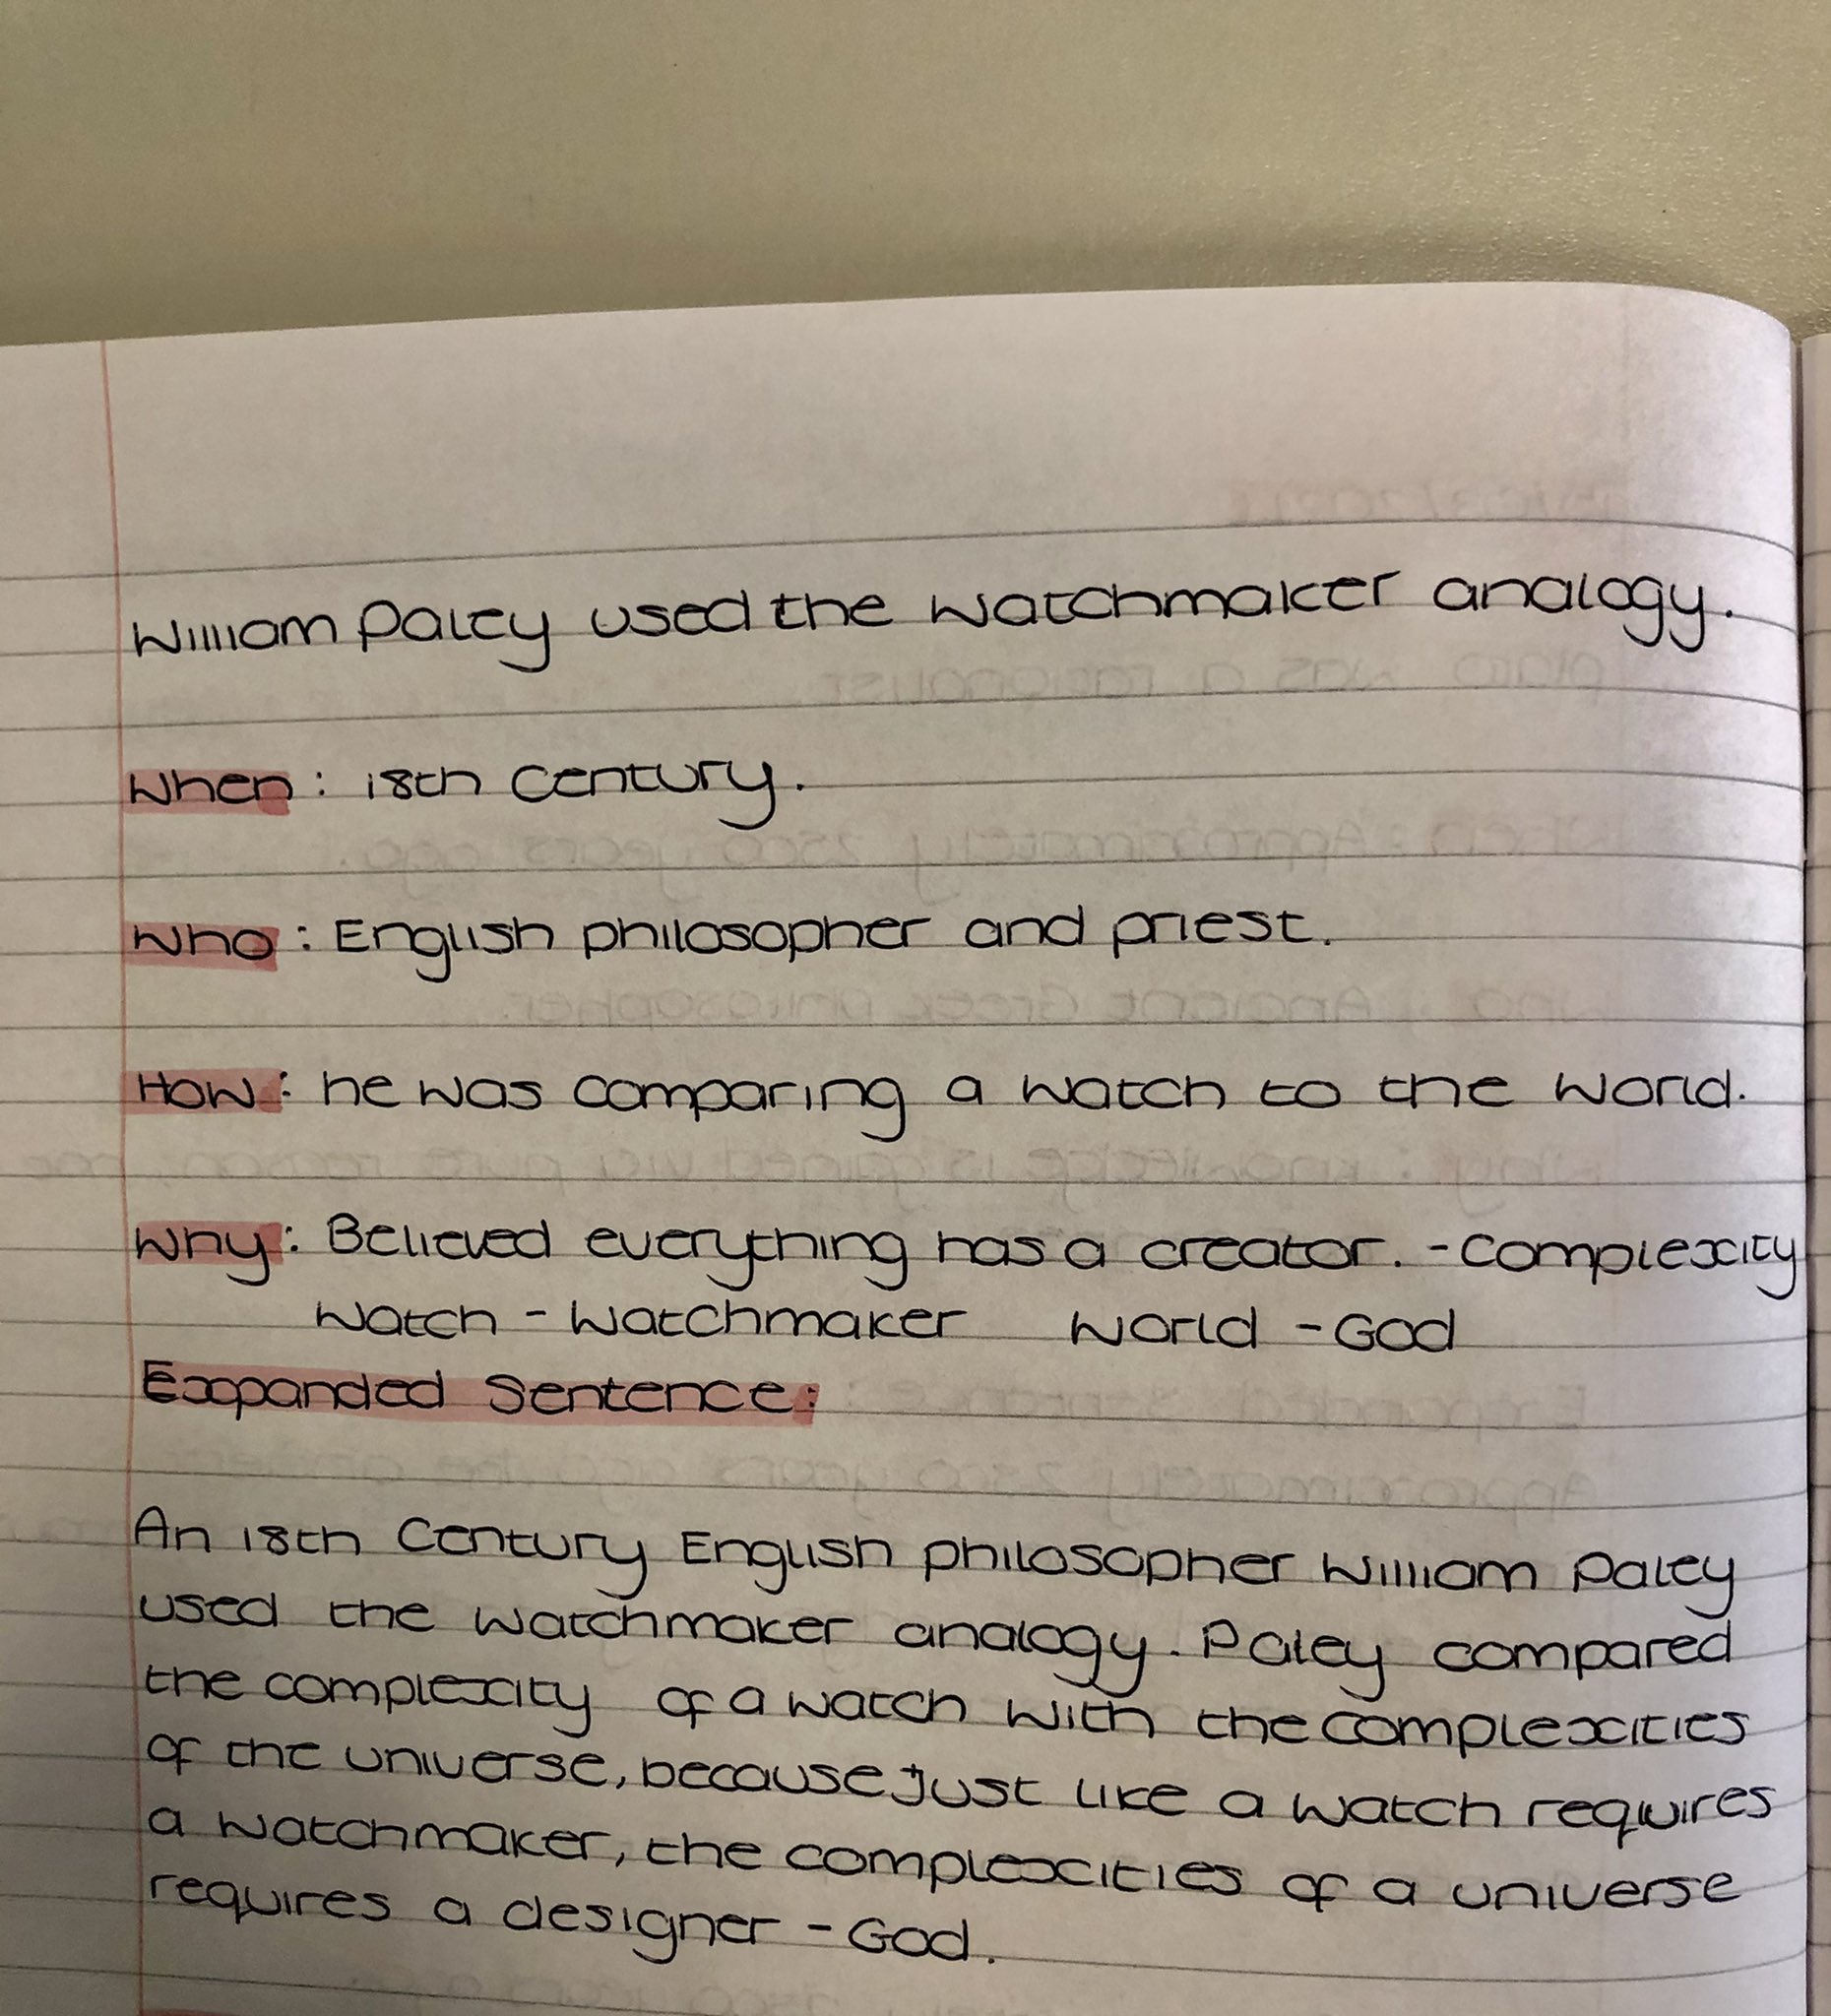 William Paley used the watchmaker analogy.
When: 18th Century.
Who: English philosopher and priest.
How: he was comparing a watch to the world.
Why: Believed everything has a creator. - Complexity
Watch - Watchmaker World - God
Expanded Sentence:
An 18th Century English philosopher William Paley
used the watchmaker analogy. Paley compared
the complexity of a watch with the complexities
of the universe, because just like a watch requires
a watchmaker, the complexities of a universe
requires a designer - God.